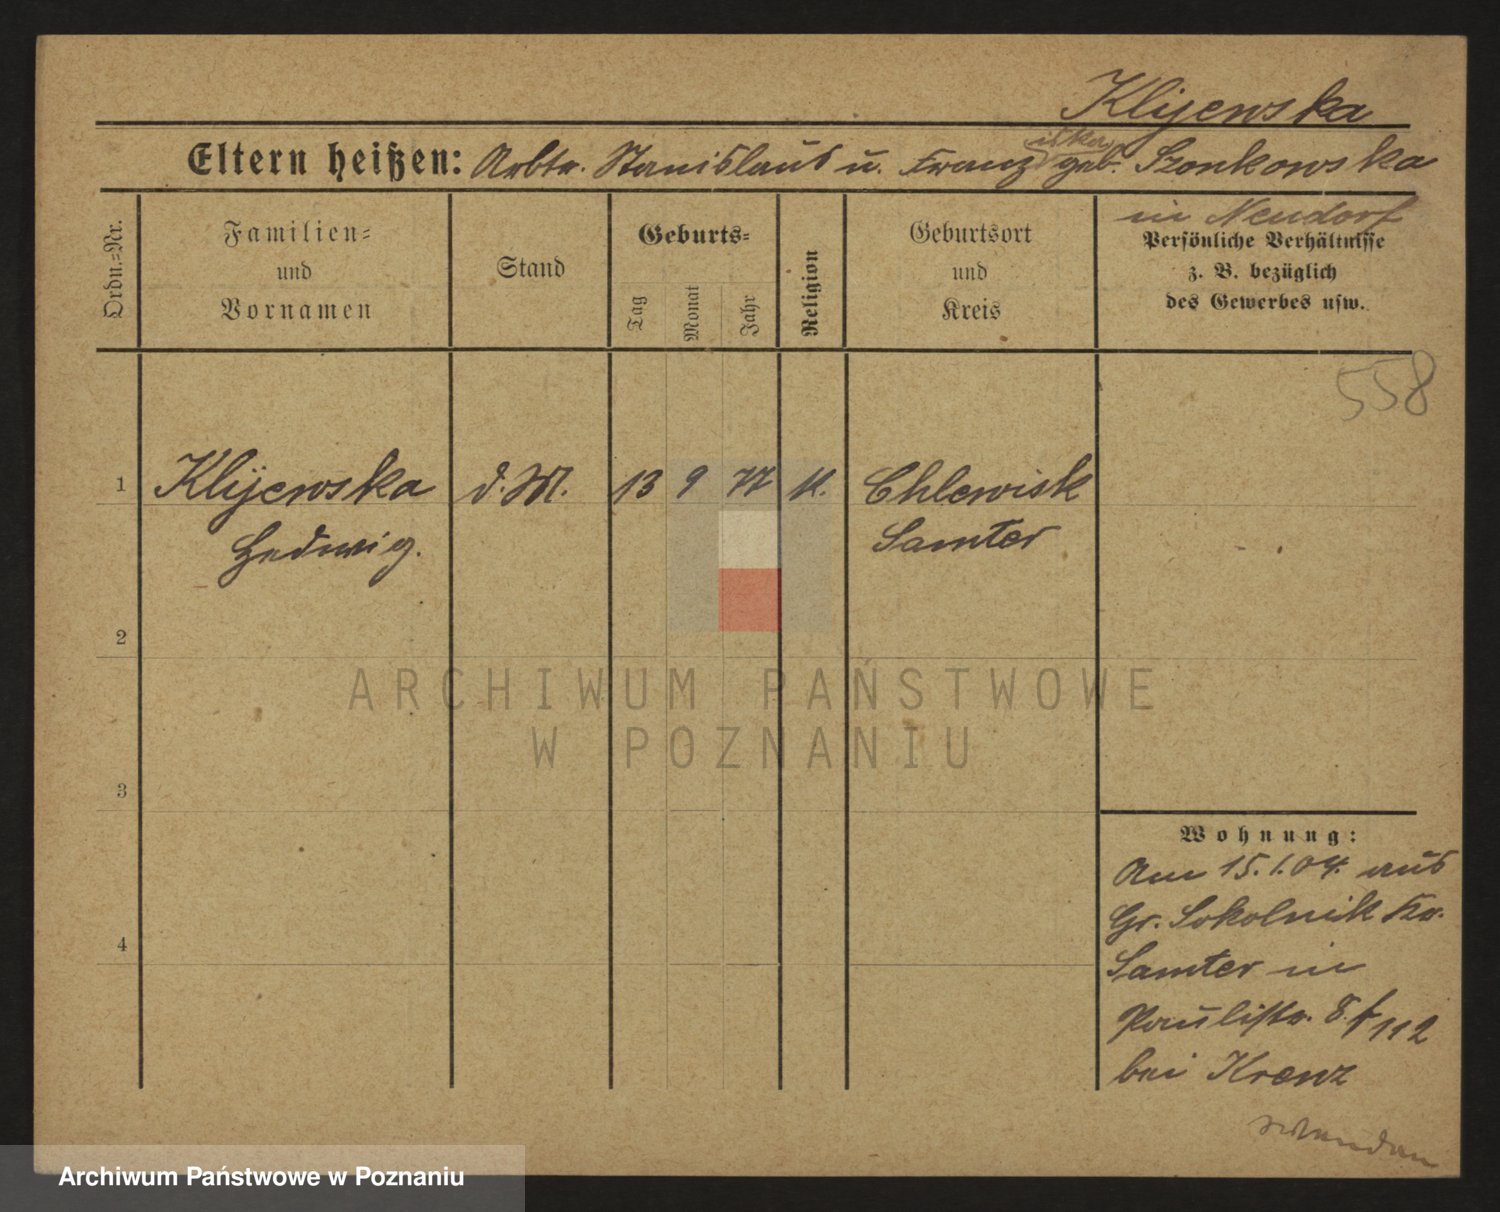 Klijewska
Eltern heißen: Arbtr. Stanislaus u. Franziska geb. Szonkowska
in Neudorf
Ordn.-Nr.
Familien-
und
Vornamen
Stand
Geburts-
Tag
Monat
Jahr
Religion
Geburtsort
und
Kreis
Persönliche Verhältnisse
z. B. bezüglich
des Gewerbes usw.
558
1 Klijewska d. M. 13 9 77 k. Chlewisk
Hedwig. Samter
2
ARCHIWUM PAŃSTWOWE
W POZNANIU
3
4
Wohnung:
Am 15.1.04. aus
Gr. Sokolnik Kr.
Samter in
Paulistr. 8.
bei Krenz
Archiwum Państwowe w Poznaniu